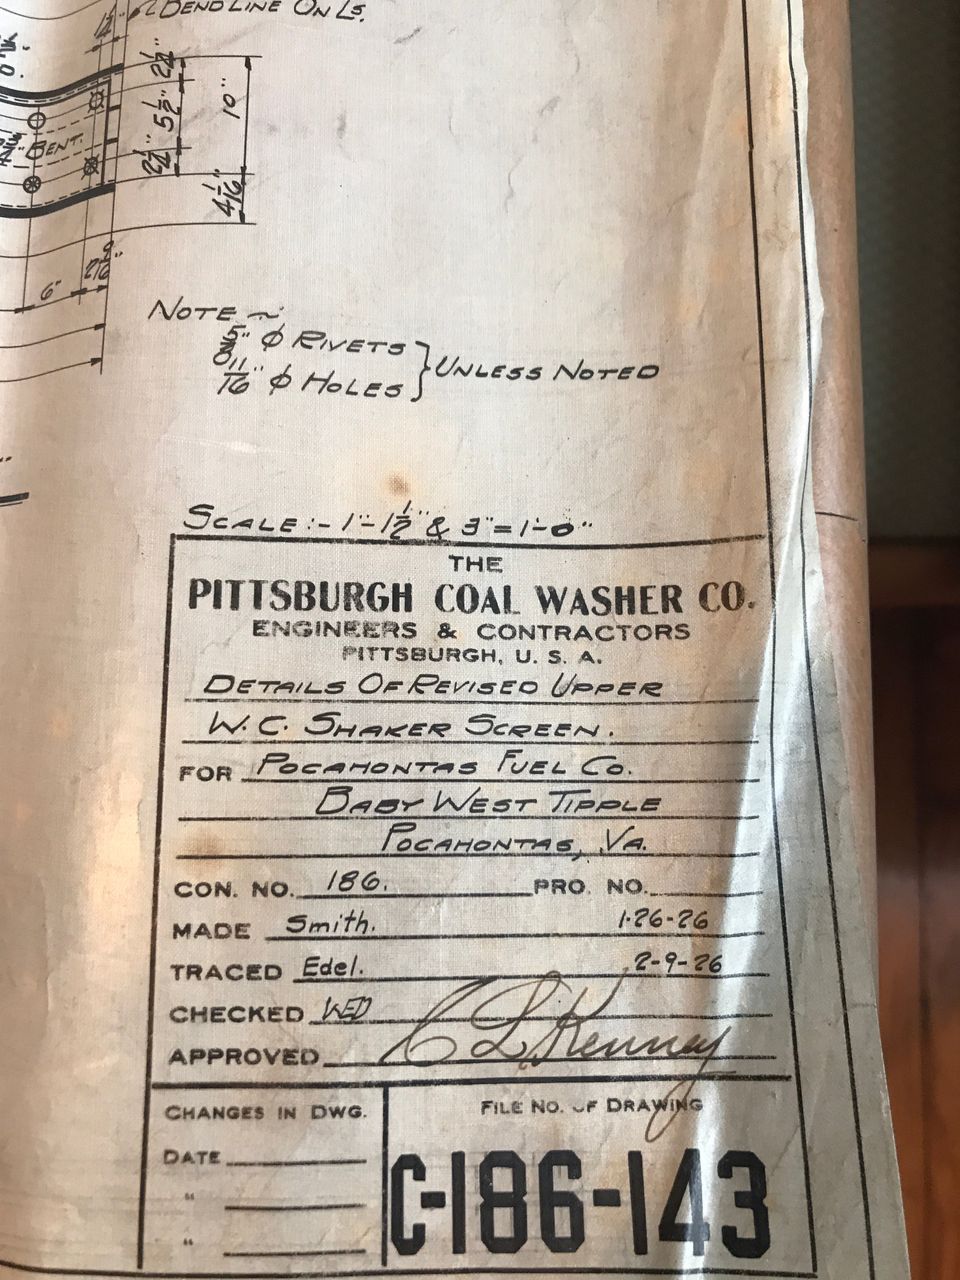 BEND LINE ON LS.
2 1/4"
5 1/2"
2 1/4"
10"
4 1/16
BENT.
6"
2 9/16"
NOTE ~
5/8" φ RIVETS
11/16" φ HOLES } UNLESS NOTED
SCALE:- 1"-1 1/2" & 3"=1'-0"
THE
PITTSBURGH COAL WASHER CO.
ENGINEERS & CONTRACTORS
PITTSBURGH, U. S. A.
DETAILS OF REVISED UPPER
W.C. SHAKER SCREEN.
FOR POCAHONTAS FUEL CO.
BABY WEST TIPPLE
POCAHONTAS, VA.
CON. NO. 186. PRO. NO.
MADE Smith. 1-26-26
TRACED Edel. 2-9-26
CHECKED WED
APPROVED C L Kenney
CHANGES IN DWG.
DATE
"
"
FILE NO. OF DRAWING
C-186-143